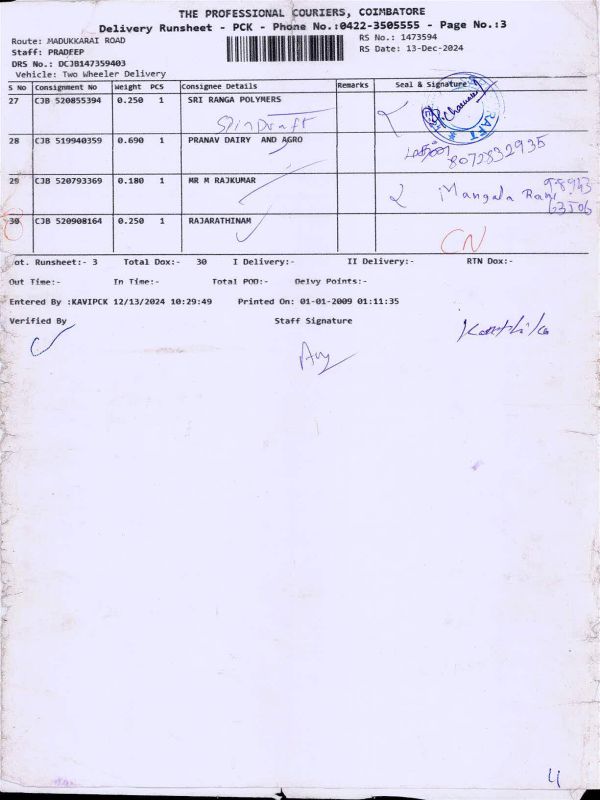 THE PROFESSIONAL COURIERS, COIMBATORE
Delivery Runsheet - PCK - Phone No.:0422-3505555 - Page No.:3
Route: MADUKKARAI ROAD
RS No.: 1473594
Staff: PRADEEP
RS Date: 13-Dec-2024
DRS No.: DCJB147359403
Vehicle: Two Wheeler Delivery
S No Consignment No Weight PCS Consignee Details Remarks Seal & Signature
27 CJB 520855394 0.250 1 SRI RANGA POLYMERS
Spin Draft
28 CJB 519940359 0.690 1 PRANAV DAIRY AND AGRO
8072832935
29 CJB 520793369 0.180 1 MR M RAJKUMAR
Mangala Rani 98943
63506
30 CJB 520908164 0.250 1 RAJARATHINAM
CN
ot. Runsheet:- 3 Total Dox:- 30 I Delivery:- II Delivery:- RTN Dox:-
Out Time:- In Time:- Total POD:- Delvy Points:-
Entered By :KAVIPCK 12/13/2024 10:29:49 Printed On: 01-01-2009 01:11:35
Verified By Staff Signature
Karthika
4